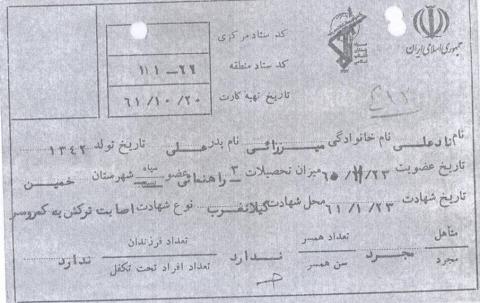 جمهوری اسلامی ایران
کد ستاد مرکزی
کد ستاد منطقه ۱۱۱-۲۲
تاریخ تهیه کارت ۶۱/۱۰/۲۰
نام نادعلی نام خانوادگی میرزائی نام پدر علی تاریخ تولد ۱۳۴۲
تاریخ عضویت ۶۰/۱۱/۲۳ میزان تحصیلات ۳ راهنمائی عضو سپاه شهرستان خمین
تاریخ شهادت ۶۱/۱/۲۳ محل شهادت گیلانغرب نوع شهادت اصابت ترکش به کمروسر
متاهل
مجرد مجرد تعداد همسر
سن همسر ندارد تعداد فرزندان
تعداد افراد تحت تکفل ندارد